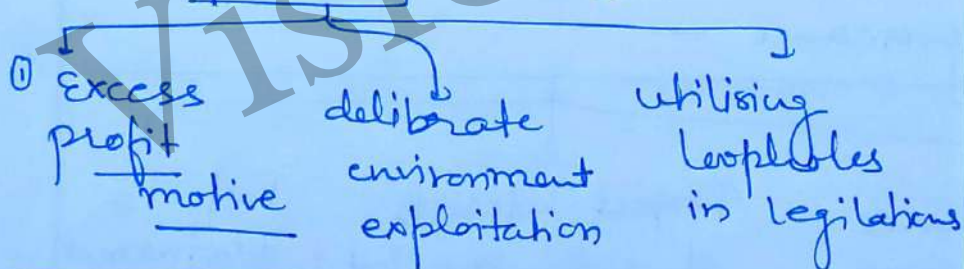 ① Excess
profit
motive
deliberate
environment
exploitation
utilising
looplholes
in legilations
Visi